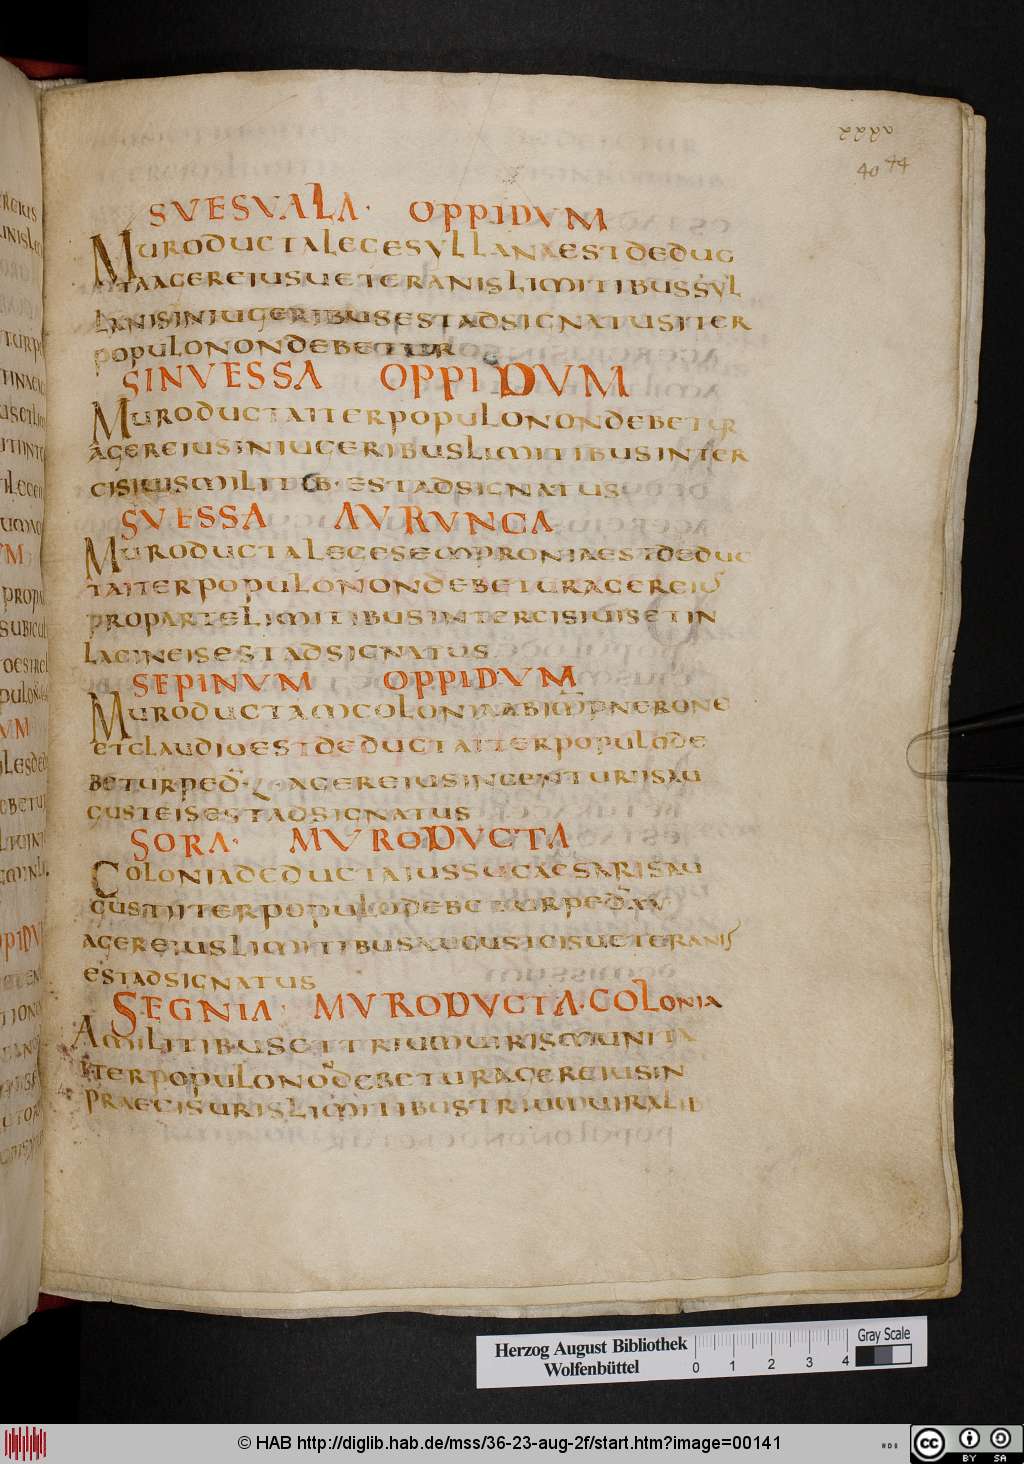 SVESVALA· OPPIDVM
MURODUCTALEGESYLLANAESTDEDUC
TAAGEREIUSUETERANISLIMITIBUSSYL
LANISINIUGERIBUSESTADSIGNATUSITER
POPULONONDEBETUR
SINVESSA OPPIDVM
MURODUCTAITERPOPULONONDEBETUR
AGEREIUSINIUGERIBUSLIMITIBUSINTER
CISIUISMILITIB·ESTADSIGNATUS
SVESSA AVRVNCA
MURODUCTALEGESEMPRONIAESTDEDUC
TAITERPOPULONONDEBETURAGEREIUS
PROPARTELIMITIBUSINTERCISIUISETIN
LACINEISESTADSIGNATUS
SEPINVM OPPIDVM
MURODUCTAMCOLONIAABIMPNERONE
ETCLAUDIOESTDEDUCTAITERPOPULODE
BETURPED· AGEREIUSINCENTURISAU
GUSTEISESTADSIGNATUS
SORA· MVRODVCTA
COLONIADEDUCTAIUSSUCAESARISAU
GUSTIITERPOPULODEBETURPED·XV
AGEREIUSLIMITIBUSAUGUSTCISUETERANIS
ESTADSIGNATUS
SEGNIA· MVRODVCTA·COLONIA
AMILITIBUSETTRIUMUIRISMUNITA
ITERPOPULONODEBETURAGEREIUSIN
PRAECISURISLIMITIBUSTRIUMUIRALIB
2220
40 44
Herzog August Bibliothek
Wolfenbüttel
0 1 2 3 4
Gray Scale
© HAB http://diglib.hab.de/mss/36-23-aug-2f/start.htm?image=00141
cc BY SA